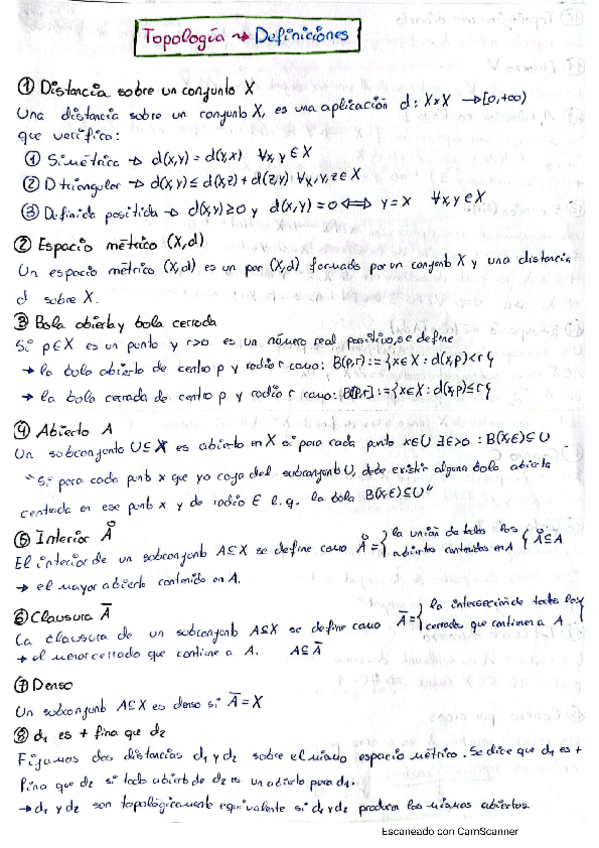 Topología → Definiciones
① Distancia sobre un conjunto X
Una distancia sobre un conjunto X, es una aplicación d: X×X → [0,+∞)
que verifica:
① Simétrica → d(x,y) = d(y,x) ∀x,y∈X
② D triangular → d(x,y) ≤ d(x,z) + d(z,y) ∀x,y,z∈X
③ Definida positida → d(x,y)≥0 y d(x,y)=0 ⟺ y=x ∀x,y∈X
② Espacio métrico (X,d)
Un espacio métrico (X,d) es un par (X,d) formado por un conjunto X y una distancia
d sobre X.
③ Bola abierta y bola cerrada
Si p∈X es un punto y r>0 es un número real positivo, se define
→ la bola abierta de centro p y radio r como: B(p,r):={x∈X : d(x,p)<r}
→ la bola cerrada de centro p y radio r como: B[p,r]:={x∈X : d(x,p)≤r}
④ Abierto A
Un subconjunto U⊆X es abierto en X si para cada punto x∈U ∃ε>0 : B(x,ε)⊆U
"Si para cada punto x que yo coja del subconjunto U, debe existir alguna bola abierta
centrada en ese punto x y de radio ε t.q. la bola B(x,ε)⊆U"
⑤ Interior Å
El interior de un subconjunto A⊆X se define como Å = {la unión de todos los
abiertos contenidos en A} Å⊆A
→ el mayor abierto contenido en A.
⑥ Clausura A̅
La clausura de un subconjunto A⊆X se define como A̅ = {la intersección de todos los
cerrados que contienen a A}
→ el menor cerrado que contiene a A. A⊆A̅
⑦ Denso
Un subconjunto A⊆X es denso si A̅ = X
⑧ d₁ es + fina que d₂
Fijamos dos distancias d₁ y d₂ sobre el mismo espacio métrico. Se dice que d₁ es +
fina que d₂ si todo abierto de d₂ es un abierto para d₁.
→ d₁ y d₂ son topológicamente equivalente si d₁ y d₂ producen los mismos abiertos.
Escaneado con CamScanner